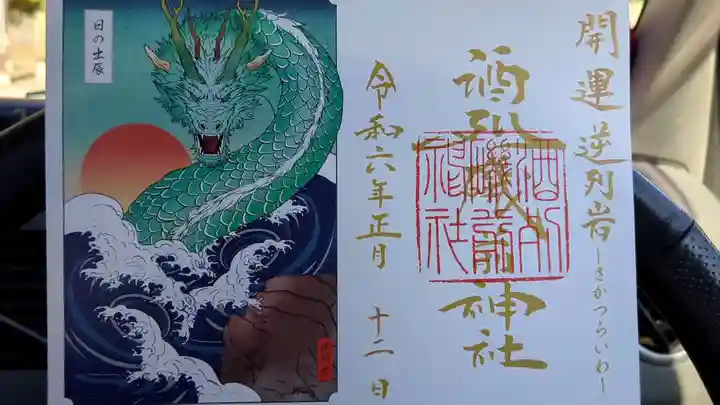 開運 逆列岩 ーさかつらいわー
酒列磯前神社
酒列
磯前
神社
令和六年正月 十二日
日の出辰